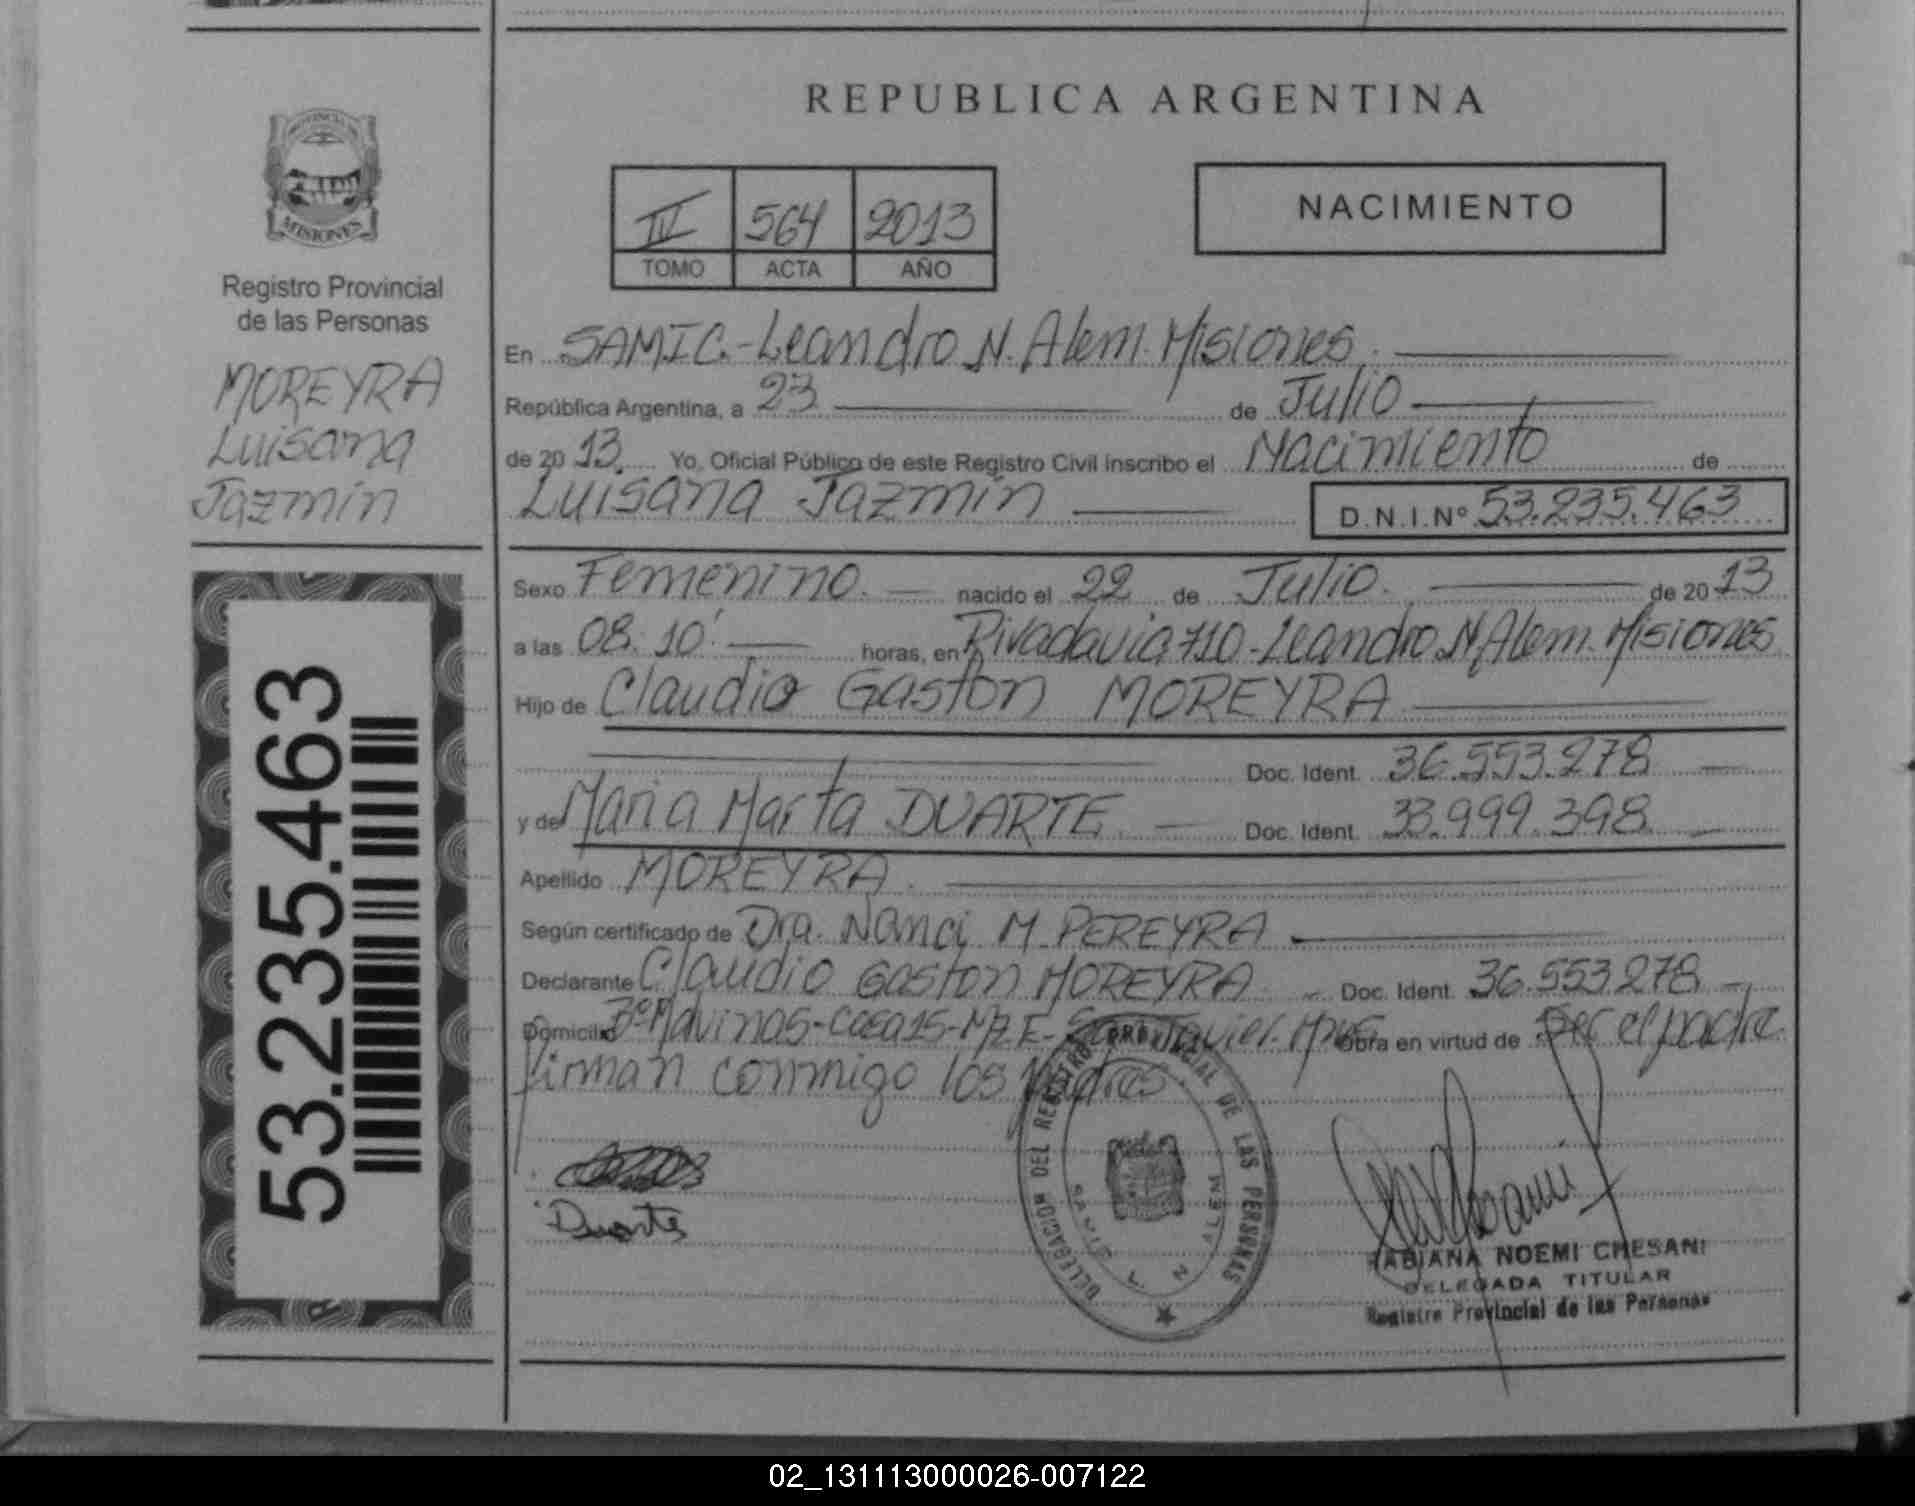 REPUBLICA ARGENTINA
PROVINCIA DE
MISIONES
Registro Provincial
de las Personas
MOREYRA
Luisana
Jazmín
53.235.463
IV 564 2013
TOMO ACTA AÑO
NACIMIENTO
En SAMIC.-Leandro N. Alem. Misiones.
República Argentina, a 23 de Julio
de 2013. Yo, Oficial Público de este Registro Civil inscribo el Nacimiento de
Luisana Jazmín D.N.I.Nº 53.235.463
Sexo Femenino. nacido el 22 de Julio. de 2013
a las 08:10' horas, en Rivadavia 710-Leandro N. Alem. Misiones
Hijo de Claudio Gaston MOREYRA
Doc. Ident. 36.553.278
y de Maria Marta DUARTE Doc. Ident. 33.999.398
Apellido MOREYRA.
Según certificado de Dra. Nanci M. PEREYRA
Declarante Claudio Gaston MOREYRA Doc. Ident. 36.553.278
Domicilio Bº Malvinas-Casa 15-Mz E- Javier. Obra en virtud de Ser el padre
firman conmigo los Padres
Duarte
DELEGACION DEL REGISTRO PROVINCIAL DE LAS PERSONAS
SAMIC L. N. ALEM
FABIANA NOEMI CHESANI
DELEGADA TITULAR
Registro Provincial de las Personas
02_131113000026-007122